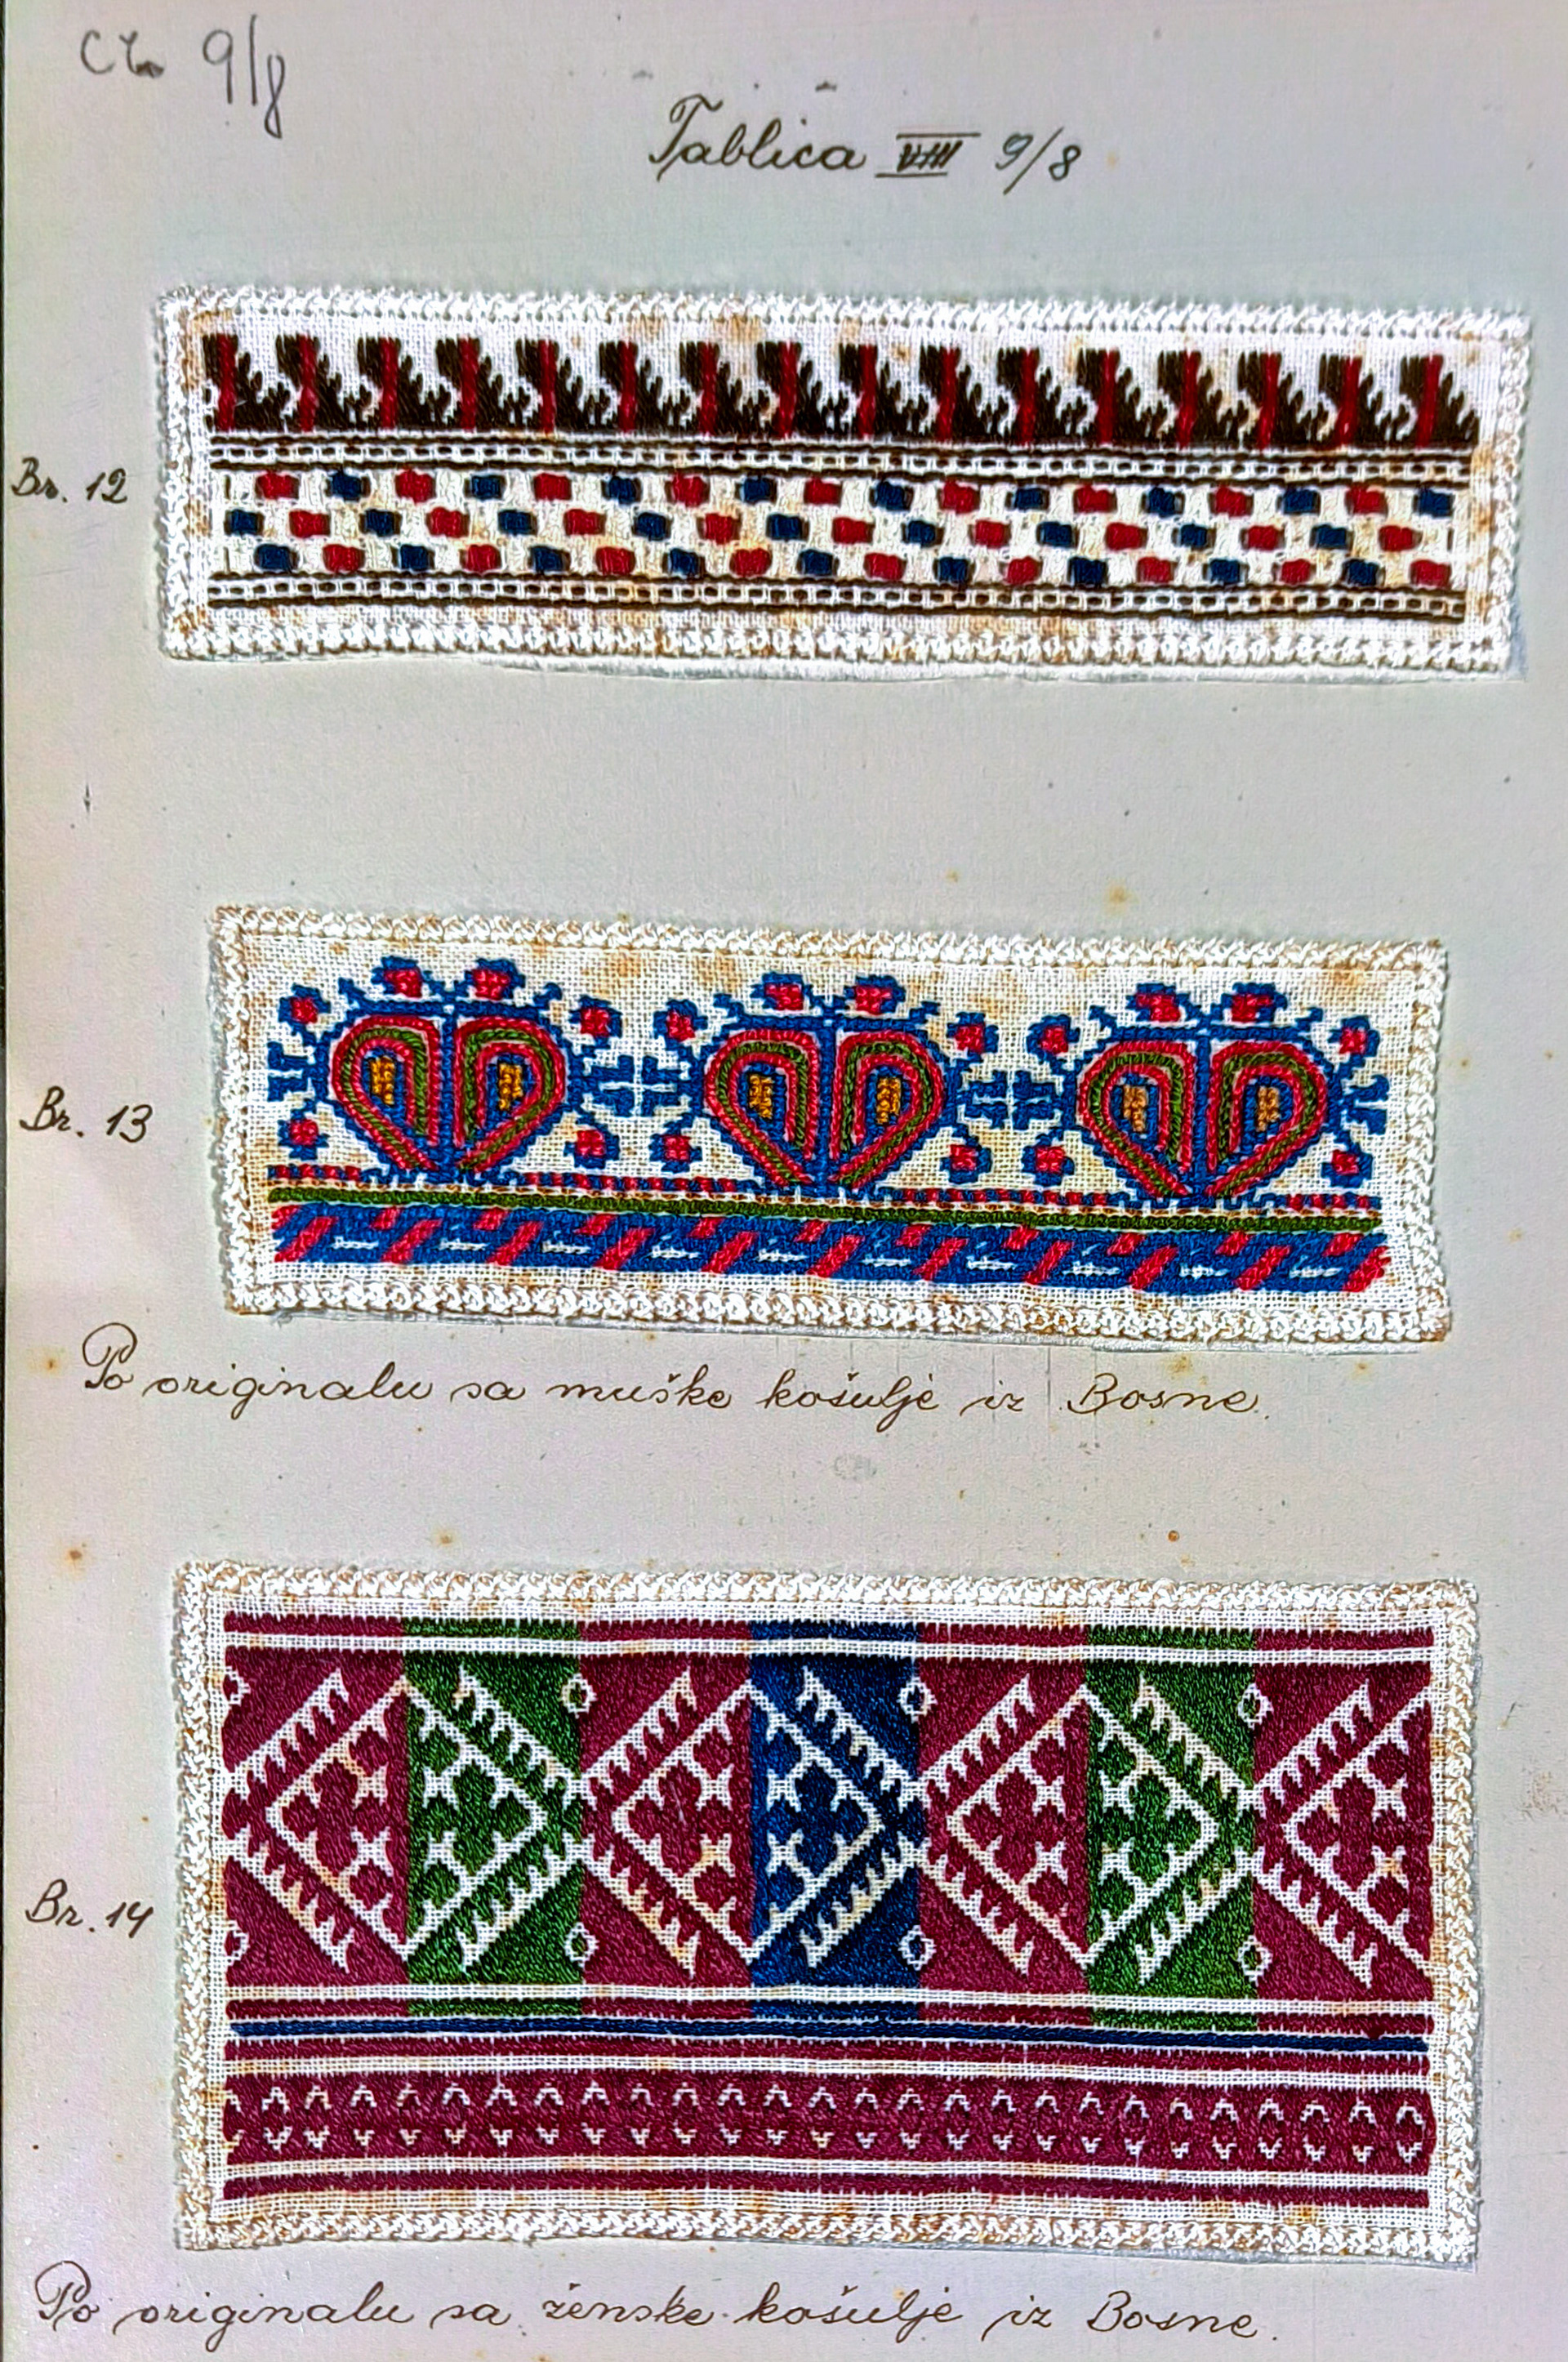 9/8
Tablica VIII 9/8
Br. 12
Br. 13
Po originalu sa muške košulje iz Bosne.
Br. 14
Po originalu sa ženske košulje iz Bosne.